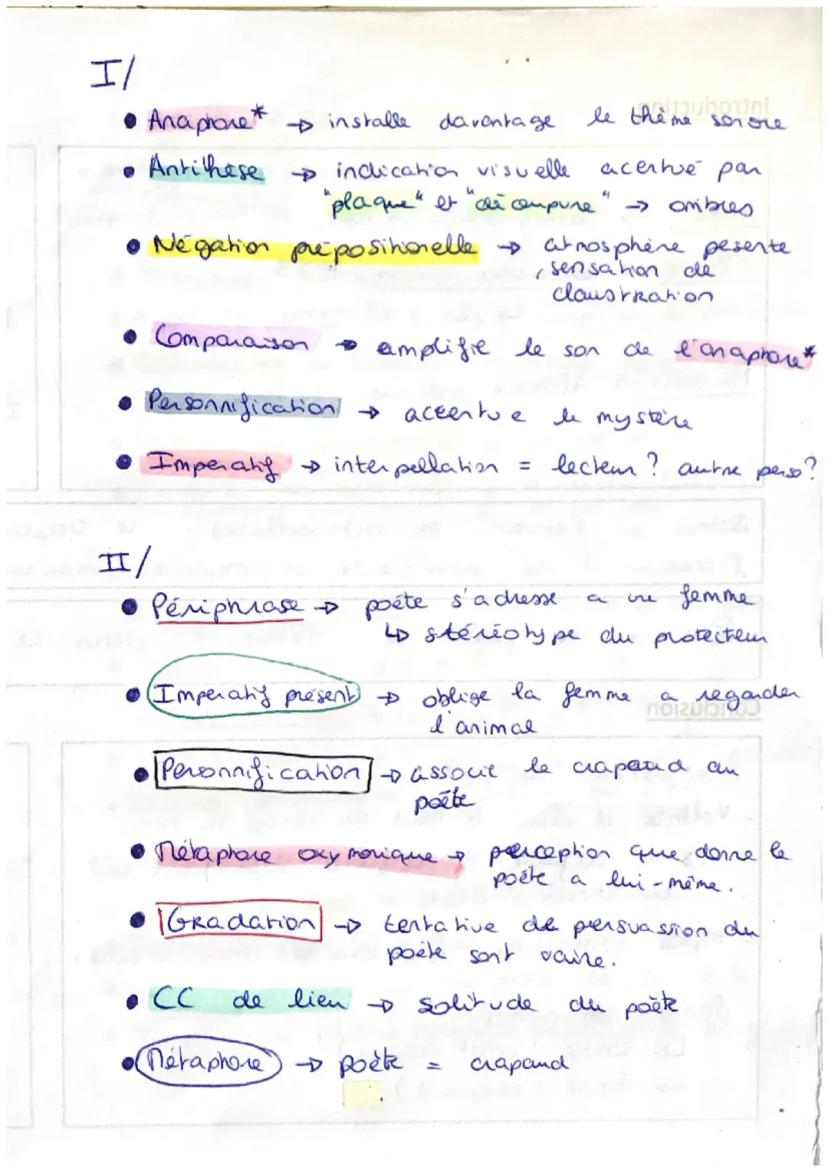 I/
• Anaphore* → installe davantage le thème sonore
• Antithèse → indication visuelle accentué par
"plaque" et "découpure" → ombres
• Négation prépositionelle → atmosphère pesente
, sensation de
claustration
• Comparaison → amplifie le son de l'anaphore*
• Personnification → accentue le mystère
• Imperatif → interpellation = lecteur ? autre perso ?
II/
• Périphrase → poète s'adresse a une femme
↳ stéréotype du protecteur
• Imperatif présent → oblige la femme a regarder
l'animal
• Personnification → associe le crapaud au
poète
• Métaphore oxymorique → perception que donne le
poète a lui-même.
• Gradation → tentative de persuassion du
poète sont vaine.
• CC de lieu → solitude du poète
• Métaphore → poète = crapaud
Introduction
Conclusion